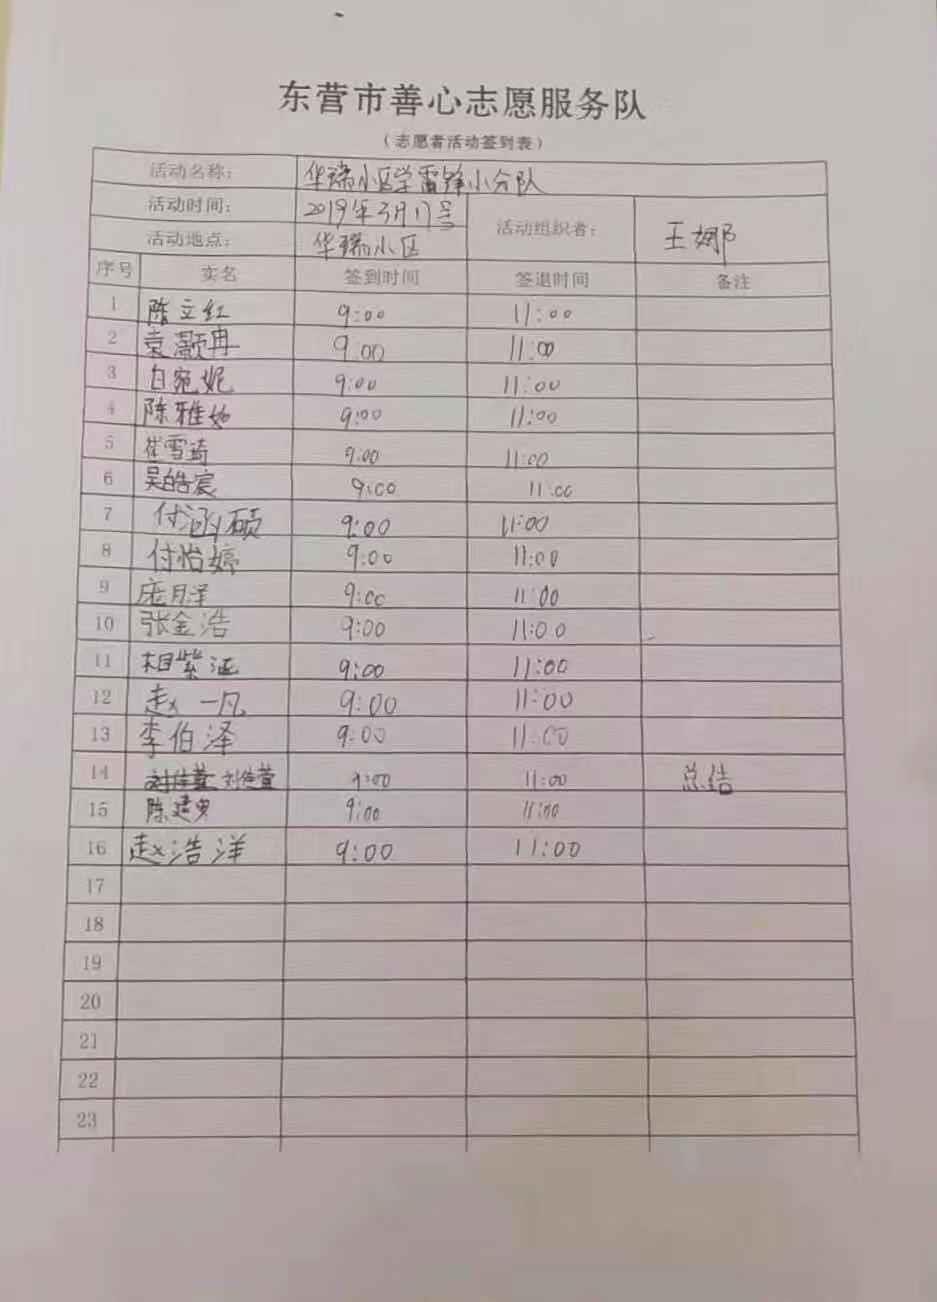 东营市善心志愿服务队
（志愿者活动签到表）
活动名称： 华瑞小区学雷锋小分队
活动时间： 2019年3月17号 活动组织者： 王娜
活动地点： 华瑞小区
序号 实名 签到时间 签退时间 备注
1 陈立红 9:00 11:00
2 袁灏冉 9:00 11:00
3 白宛妮 9:00 11:00
4 陈雅如 9:00 11:00
5 崔雪琦 9:00 11:00
6 吴皓宸 9:00 11:00
7 付涵硕 9:00 11:00
8 付怡婷 9:00 11:00
9 庞月泽 9:00 11:00
10 张金浩 9:00 11:00
11 相紫涵 9:00 11:00
12 赵一凡 9:00 11:00
13 李伯泽 9:00 11:00
14 刘佳萱 9:00 11:00 总结
15 陈建 9:00 11:00
16 赵浩洋 9:00 11:00
17
18
19
20
21
22
23